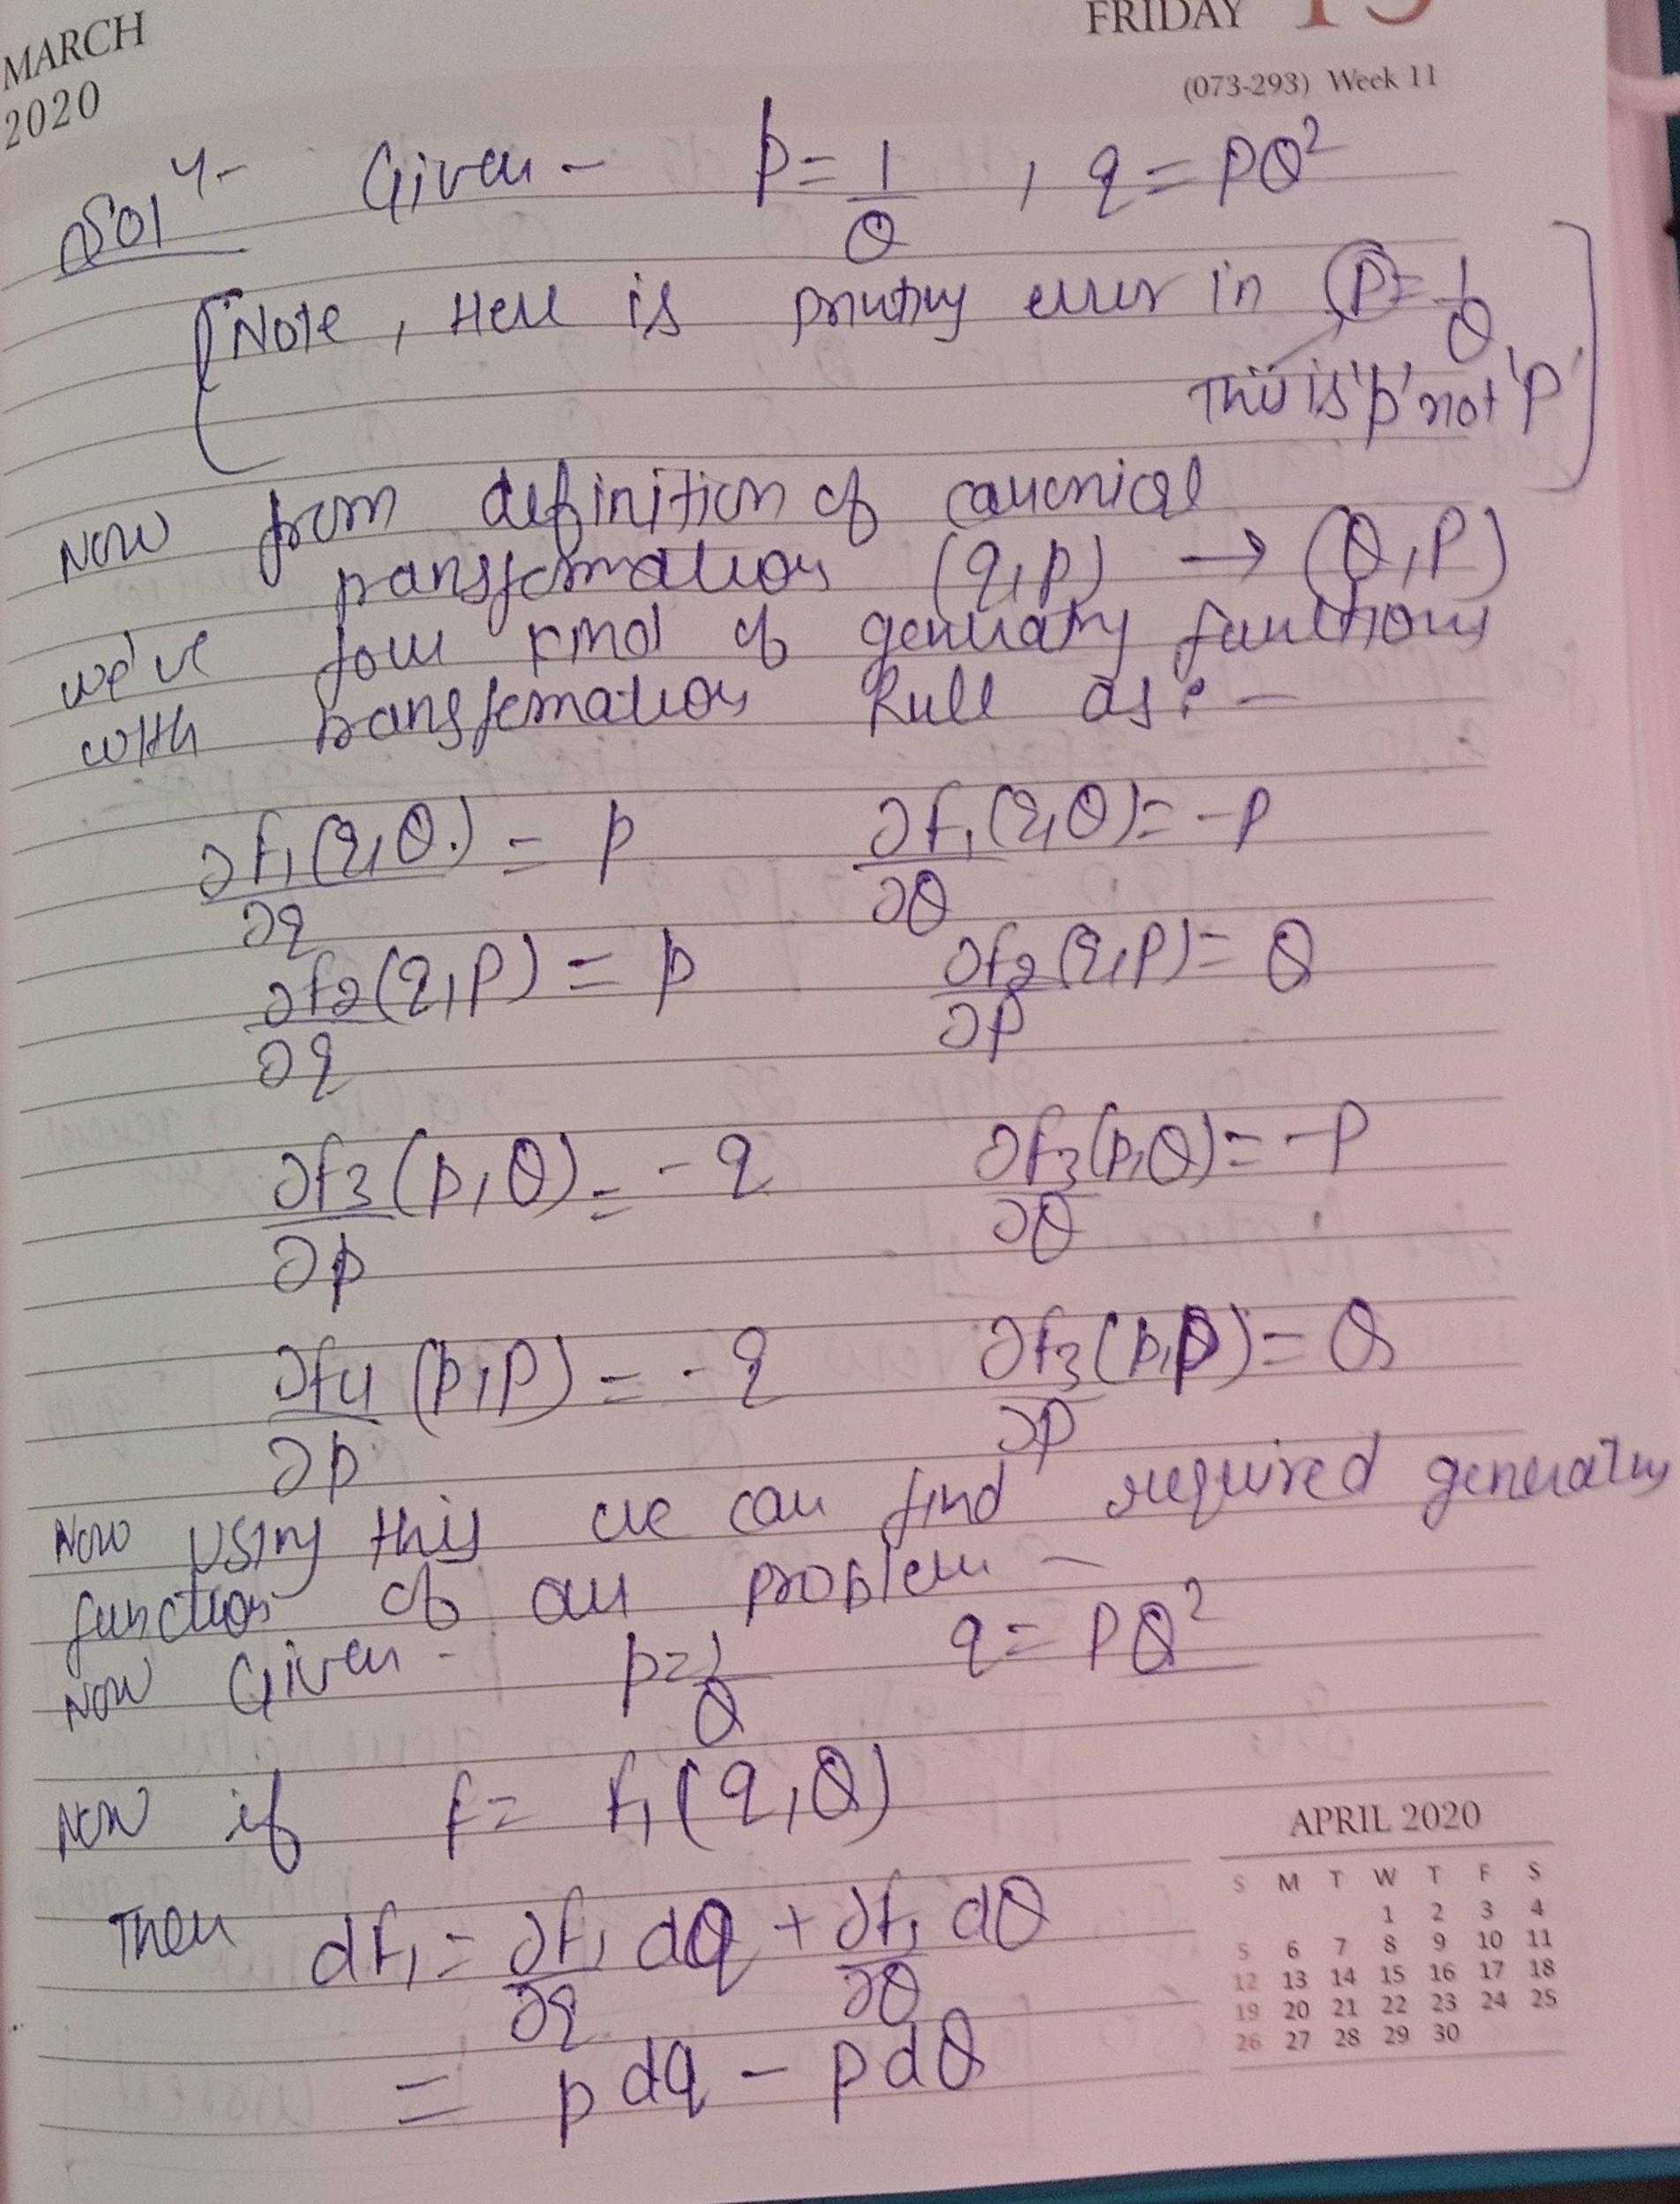 MARCH
2020
FRIDAY 13
(073-293) Week 11
Solⁿ- Given - p = 1/Q , q = PQ²
[Note, Here is printing error in p = 1/Q
This is 'p' not 'P']
Now from definition of canonical
transformation (q,p) → (Q,P)
we've four kind of generating functions
with transformation Rule as:-
∂f₁(q,Q)/∂q = p ∂f₁(q,Q)/∂Q = -P
∂f₂(q,P)/∂q = p ∂f₂(q,P)/∂P = Q
∂f₃(p,Q)/∂p = -q ∂f₃(p,Q)/∂Q = -P
∂f₄(p,P)/∂p = -q ∂f₃(p,P)/∂P = Q
Now using this we can find required generating
function of our problem -
Now Given - p = 1/Q q = PQ²
Now if f = f₁(q,Q)
Then df₁ = ∂f₁/∂q dq + ∂f₁/∂Q dQ
= p dq - P dQ
APRIL 2020
S M T W T F S
1 2 3 4
5 6 7 8 9 10 11
12 13 14 15 16 17 18
19 20 21 22 23 24 25
26 27 28 29 30